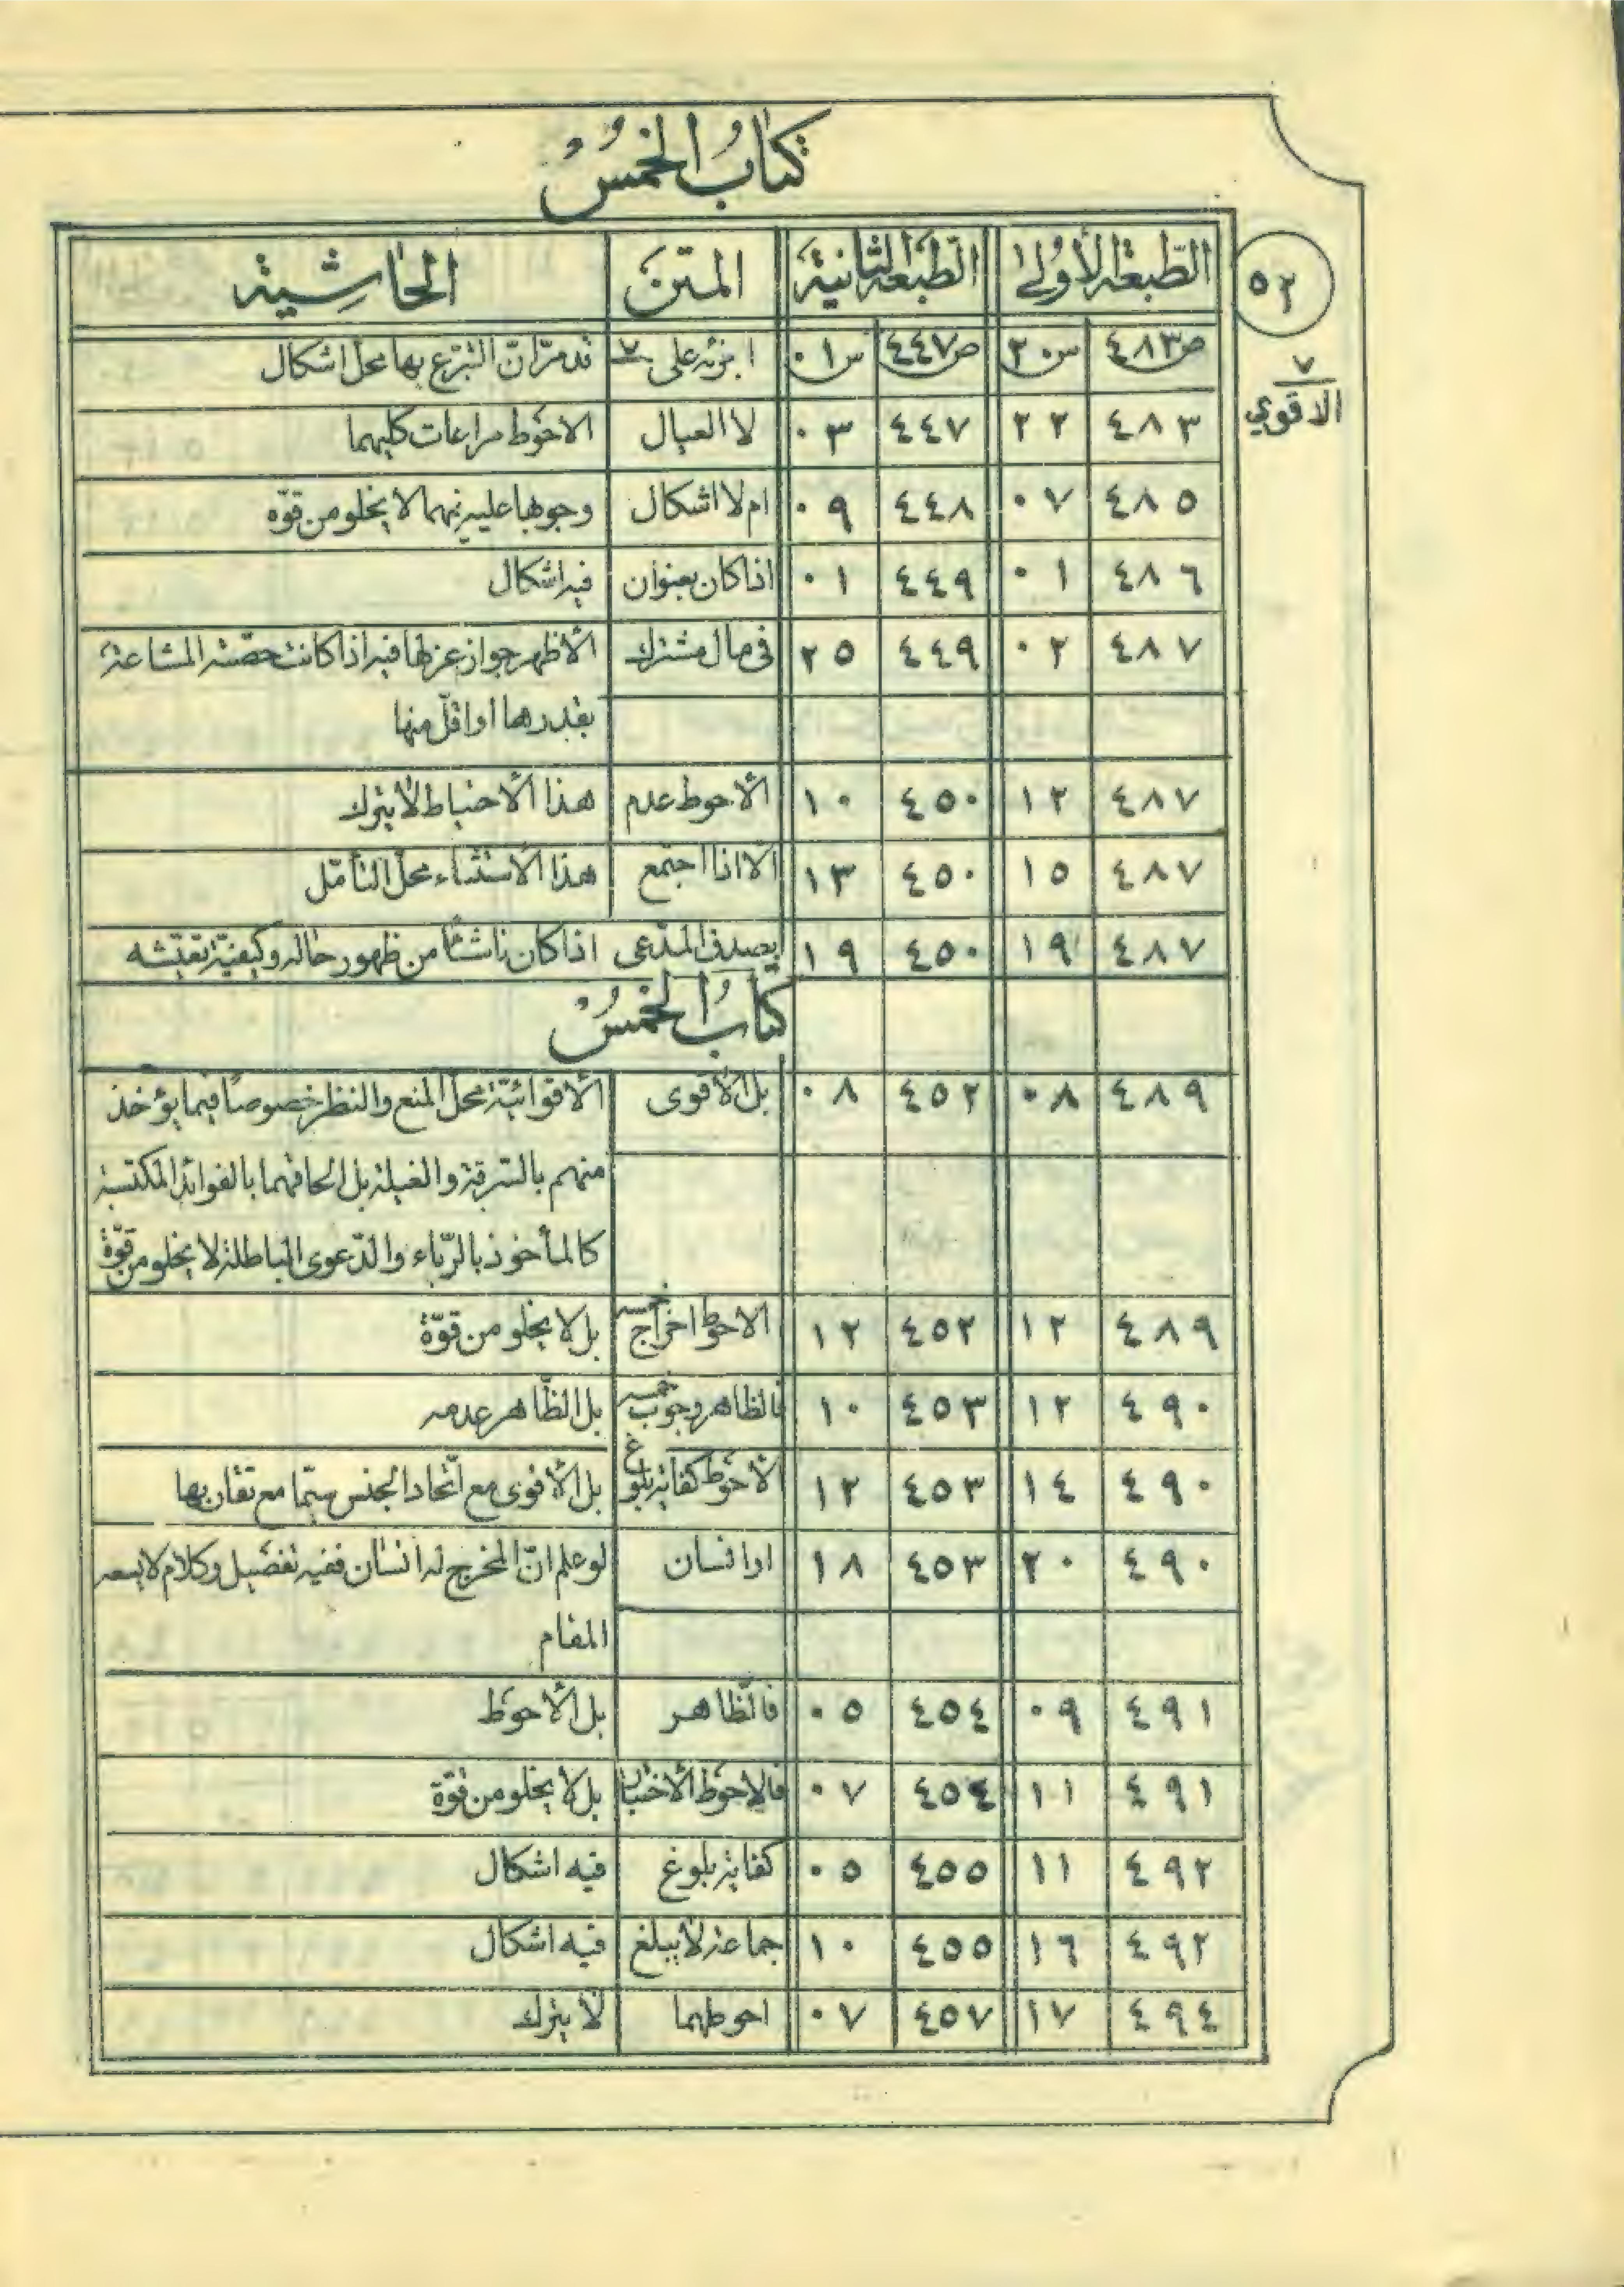 كتاب الخمس
٥٢
الطبعة الأولى الطبعة الثانية المتن الحاشية
ص٤٨٣ س٢٠ ص٤٤٧ س٠١ اجزئه على ٧ قد مرّ انّ التبرّع بها محل اشكال
٧
الاقوي
٤٨٣ ٢٢ ٤٤٧ ٠٣ لا العيال الاحوط مراعات كليهما
٤٨٥ ٠٧ ٤٤٨ ٠٩ ام لا اشكال وجوبها عليه فيهما لا يخلو من قوّه
٤٨٦ ٠١ ٤٤٩ ٠١ اذا كان بعنوان فيه اشكال
٤٨٧ ٠٢ ٤٤٩ ٢٥ في مال مشترك الأظهر جواز عزلها فيه اذا كانت حصّته المشاعة
بقدرها او اقلّ منها
٤٨٧ ١٢ ٤٥٠ ١٠ الأحوط عدم هذا الأحتياط لا يترك
٤٨٧ ١٥ ٤٥٠ ١٣ الا اذا اجتمع هذا الأستثناء محل التأمّل
٤٨٧ ١٩ ٤٥٠ ١٩ يصدق المدّعى اذا كان ناشئًا من ظهور حاله وكيفيّة تعيّشه
كتاب الخمس
٤٨٩ ٠٨ ٤٥٢ ٠٨ بل الأقوى الأقوائيّة محل المنع والنظر خصوصًا فيما يؤخذ
منهم بالسرقة والغيلة بل الحاقهما بالفوائد المكتسبة
كالمأخوذ بالرّباء والدّعوى الباطلة لا يخلو من قوّة
٤٨٩ ١٢ ٤٥٢ ١٢ الاحوط اخراج خمسه بل لا يخلو من قوّة
٤٩٠ ١٢ ٤٥٣ ١٠ فالظاهر وجوب خمسه بل الظّاهر عدمه
٤٩٠ ١٤ ٤٥٣ ١٢ الأحوط كفاية بلوغ بل الأقوى مع اتّحاد الجنس سيّما مع تقاربها
٤٩٠ ٢٠ ٤٥٣ ١٨ او انسان لو علم انّ المخرج له انسان ففيه تفصيل وكلام لا يسعه
المقام
٤٩١ ٠٩ ٤٥٤ ٠٥ فالظّاهر بل الأحوط
٤٩١ ١١ ٤٥٤ ٠٧ فالاحوط الاختبار بل لا يخلو من قوّة
٤٩٢ ١١ ٤٥٥ ٠٥ كفاية بلوغ فيه اشكال
٤٩٢ ١٦ ٤٥٥ ١٠ جماعة لا يبلغ فيه اشكال
٤٩٤ ١٧ ٤٥٧ ٠٧ احوطهما لا يترك